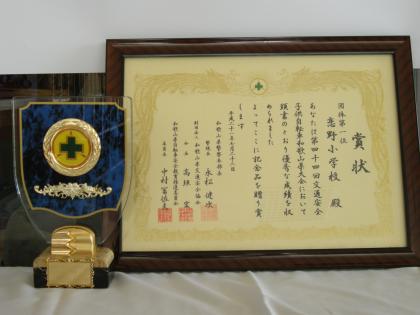 賞状
団体第一位
恋野小学校 殿
あなたは第四十四回交通安全
子供自転車和歌山県大会において
頭書のとおり優秀な成績を収
められました
よってここに記念品を贈り賞
します
平成二十一年七月二十二日
和歌山県警察本部
本部長 永松健次
財団法人 和歌山県交通安全協会
会長 高垣 宏
和歌山県自転車安全教育推進委員会
委員長 中村富佐